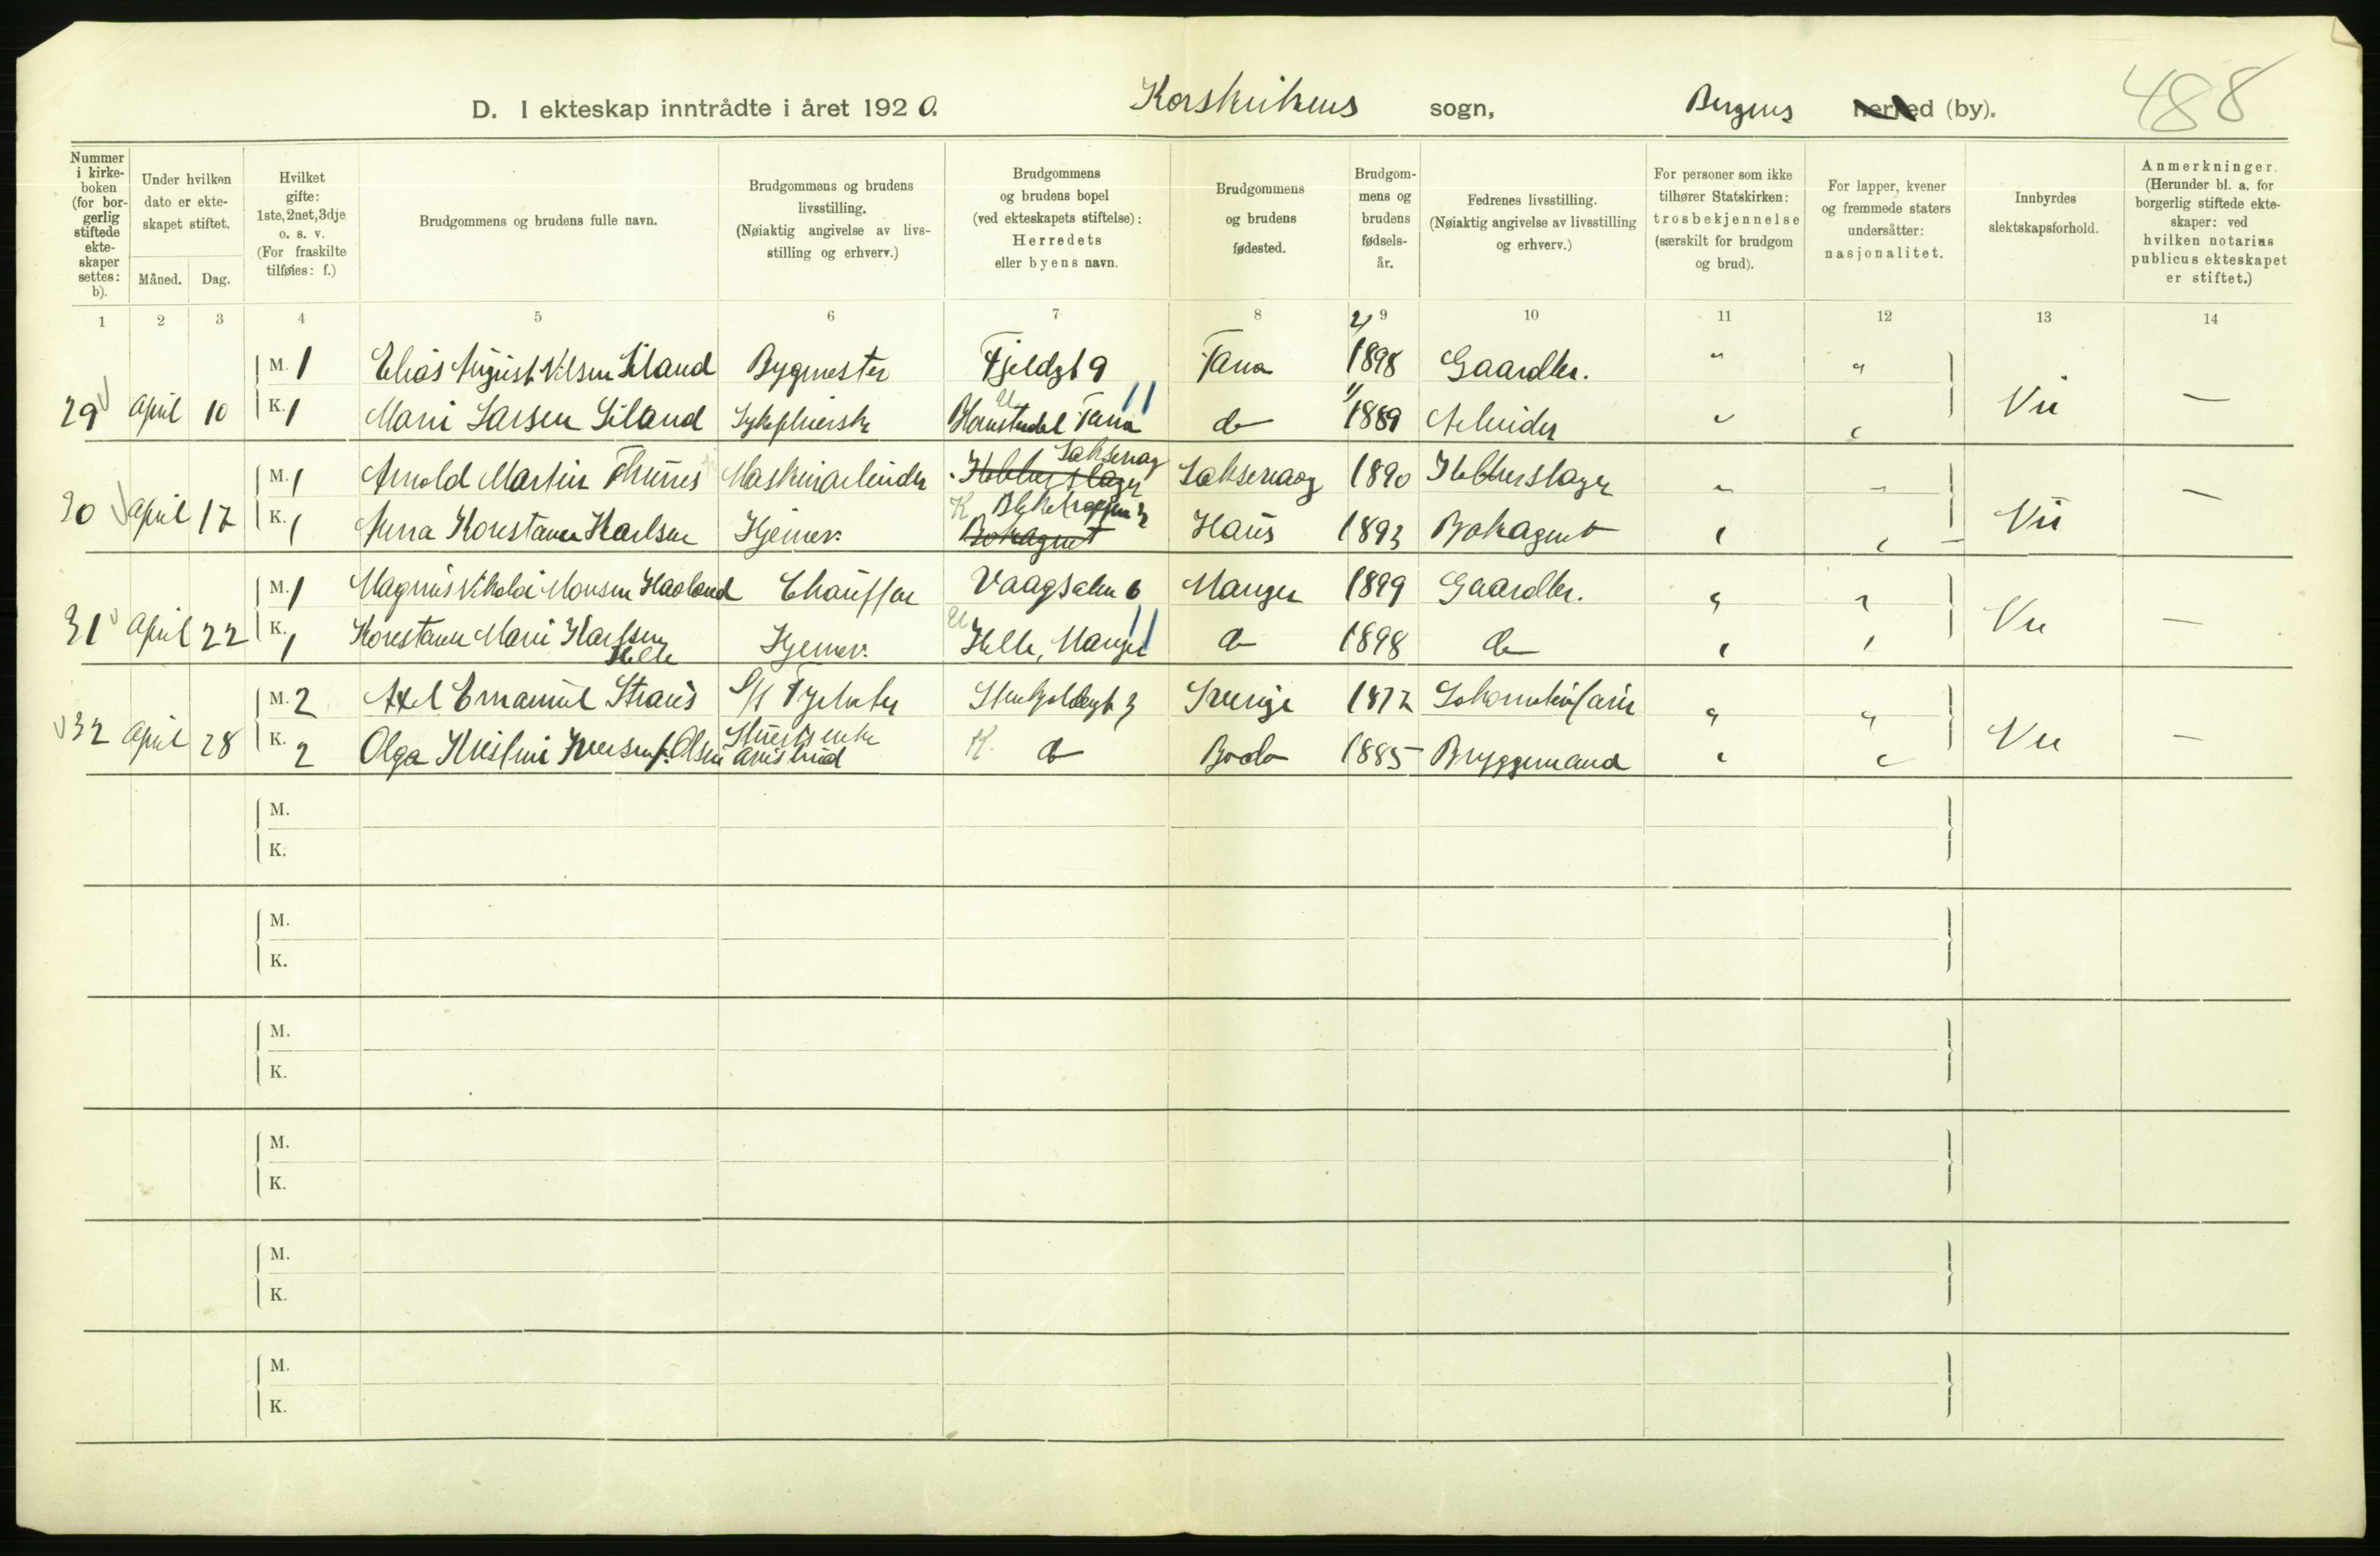 D. I ekteskap inntrådte i året 1920. Korskirkens sogn, Bergens herred (by). 488
Nummer i kirkeboken (for borgerlig stiftede ekteskaper settes: b).
Under hvilken dato er ekteskapet stiftet.
Måned. Dag.
Hvilket gifte: 1ste, 2net, 3dje o. s. v. (For fraskilte tilføies: f.)
Brudgommens og brudens fulle navn.
Brudgommens og brudens livsstilling. (Nøiaktig angivelse av livsstilling og erhverv.)
Brudgommens og brudens bopel (ved ekteskapets stiftelse): Herredets eller byens navn.
Brudgommens og brudens fødested.
Brudgommens og brudens fødselsår.
Fedrenes livsstilling. (Nøiaktig angivelse av livsstilling og erhverv.)
For personer som ikke tilhører Statskirken: trosbekjennelse (særskilt for brudgom og brud).
For lapper, kvener og fremmede staters undersåtter: nasjonalitet.
Innbyrdes slektskapsforhold.
Anmerkninger. (Herunder bl. a. for borgerlig stiftede ekteskaper: ved hvilken notarius publicus ekteskapet er stiftet.)
1 2 3 4 5 6 7 8 9 10 11 12 13 14
M. 1 Elias August Nilsen Liland Bygmester Fjeldgt 9 Fana 1898 Gaardbr. " "
29 April 10 K. 1 Marie Larsen Liland Sykepleierske Fana do 1889 Arbeider " " Nei —
M. 1 Arnold Martin Thunes Maskinarbeider Kobberslager Laksevaag Laksevaag 1890 Kobberslager " " —
30 April 17 K. 1 Anna Konstance Karlsen Hjemmev. K Bokagent Haus 1893 Bokagent " " Nei
M. 1 Magnus Nikolai Monsen Haaland Chauffør Vaagsalm 6 Manger 1899 Gaardbr. " "
31 April 22 K. 1 Konstance Marie Karlsen Helle Hjemmev. U Helle, Manger do 1898 do " " Nei —
M. 2 Axel Emanuel Straus S/S Fyrbøter 3 Sverige 1872 " "
32 April 28 K. 2 Olga Kristine Iversen f. Olsen K. do Bodø 1885 Bryggemand " " Nei —
M.
K.
M.
K.
M.
K.
M.
K.
M.
K.
M.
K.